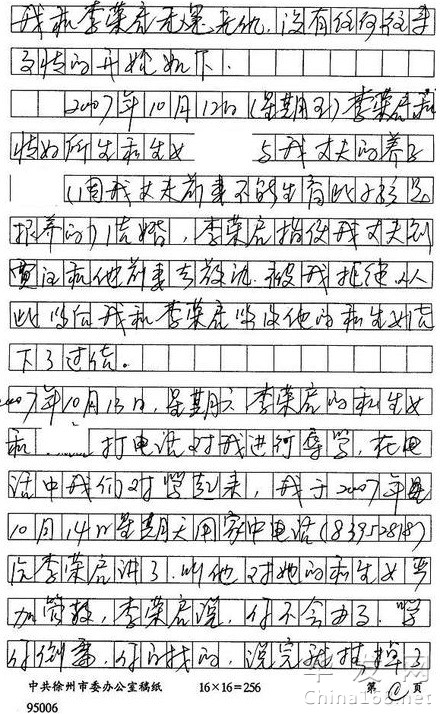 我和李荣启无冤无仇,没有任何往来
事情的开始如下.
2007年10月12日(星期五)李荣启和
情妇所生私生女 与我丈夫的养子
(因我丈夫前妻不能生育此孩是
抱养的)结婚,李荣启指使我丈夫到
宾馆和他前妻去敬酒.被我拒绝.从
此以后我和李荣启以及他的私生女结
下了过结。
2007年10月13日,星期六李荣启的私生女
和 打电话对我进行辱骂,在电
话中我们对骂起来,我于2007年
10月14日星期天用家中电话(83952818)
给李荣启讲了.叫他对她的私生女严
加管教,李荣启说,你不会办了.骂
你活该,你自找的,说完就挂掉了
中共徐州市委办公室稿纸 16×16=256 第 ① 页
95006
China168.net